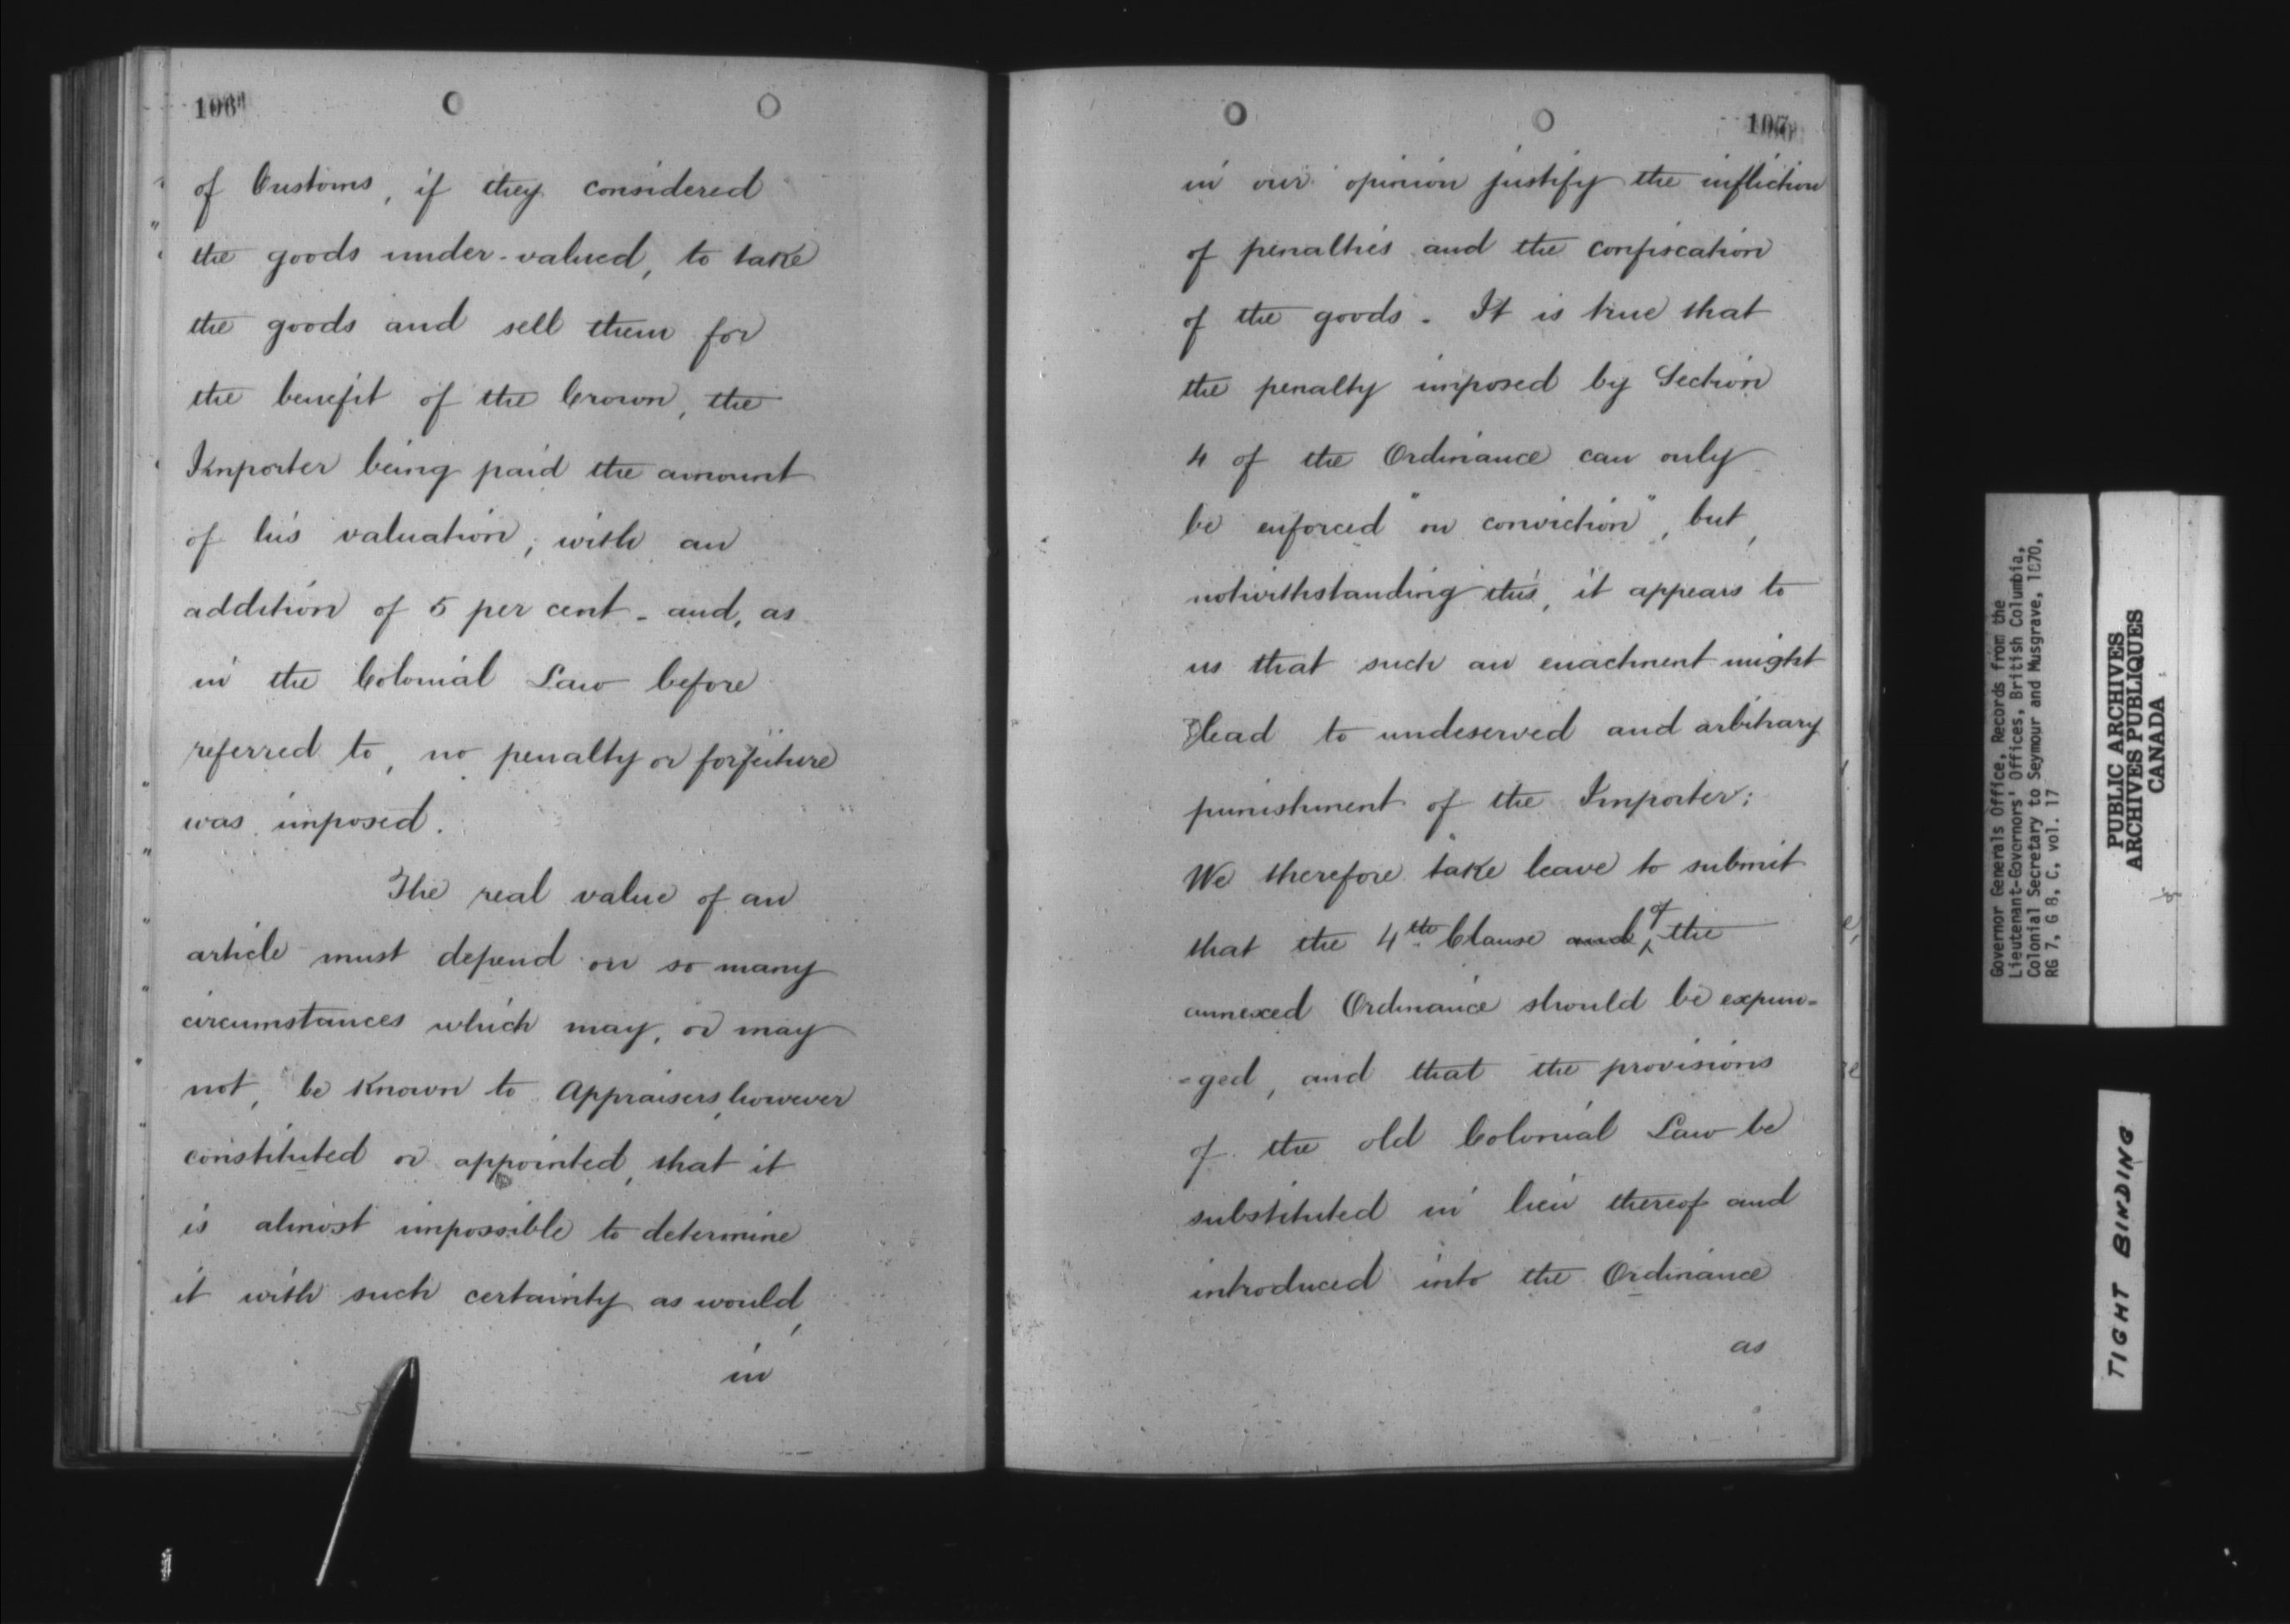 106
of Customs, if they considered
the goods under-valued, to take
the goods and sell them for
the benefit of the Crown, the
Importer being paid the amount
of his valuation, with an
addition of 5 per cent - and, as
in the Colonial Law before
referred to, no penalty or forfeiture
was imposed.
The real value of an
article must depend on so many
circumstances which may, or may
not, be known to Appraisers, however
constituted or appointed, that it
is almost impossible to determine
it with such certainty as would,
in
107
in our opinion justify the infliction
of penalties and the confiscation
of the goods. It is true that
the penalty imposed by Section
4 of the Ordinance can only
be enforced "on conviction", but,
notwithstanding this, it appears to
us that such an enactment might
lead to undeserved and arbitrary
punishment of the Importer:
We therefore take leave to submit
that the 4th Clause and of the
annexed Ordinance should be expun=
=ged, and that the provisions
of the old Colonial Law be
substituted in lieu thereof and
introduced into the Ordinance
as
Governor Generals Office, Records from the
Lieutenant-Governors' Offices, British Columbia,
Colonial Secretary to Seymour and Musgrave, 1870,
RG 7, G 8, C, vol. 17
PUBLIC ARCHIVES
ARCHIVES PUBLIQUES
CANADA
TIGHT BINDING